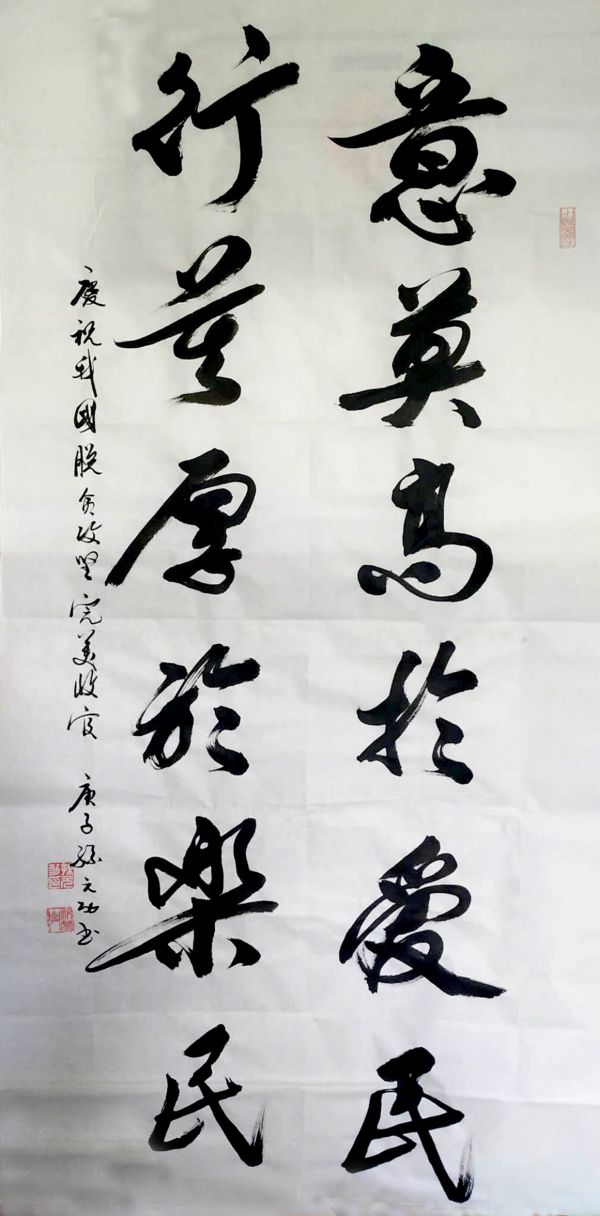 意莫高於愛民
行莫厚於樂民
慶祝我國脱貧攻堅完美收官 庚子孫元功书